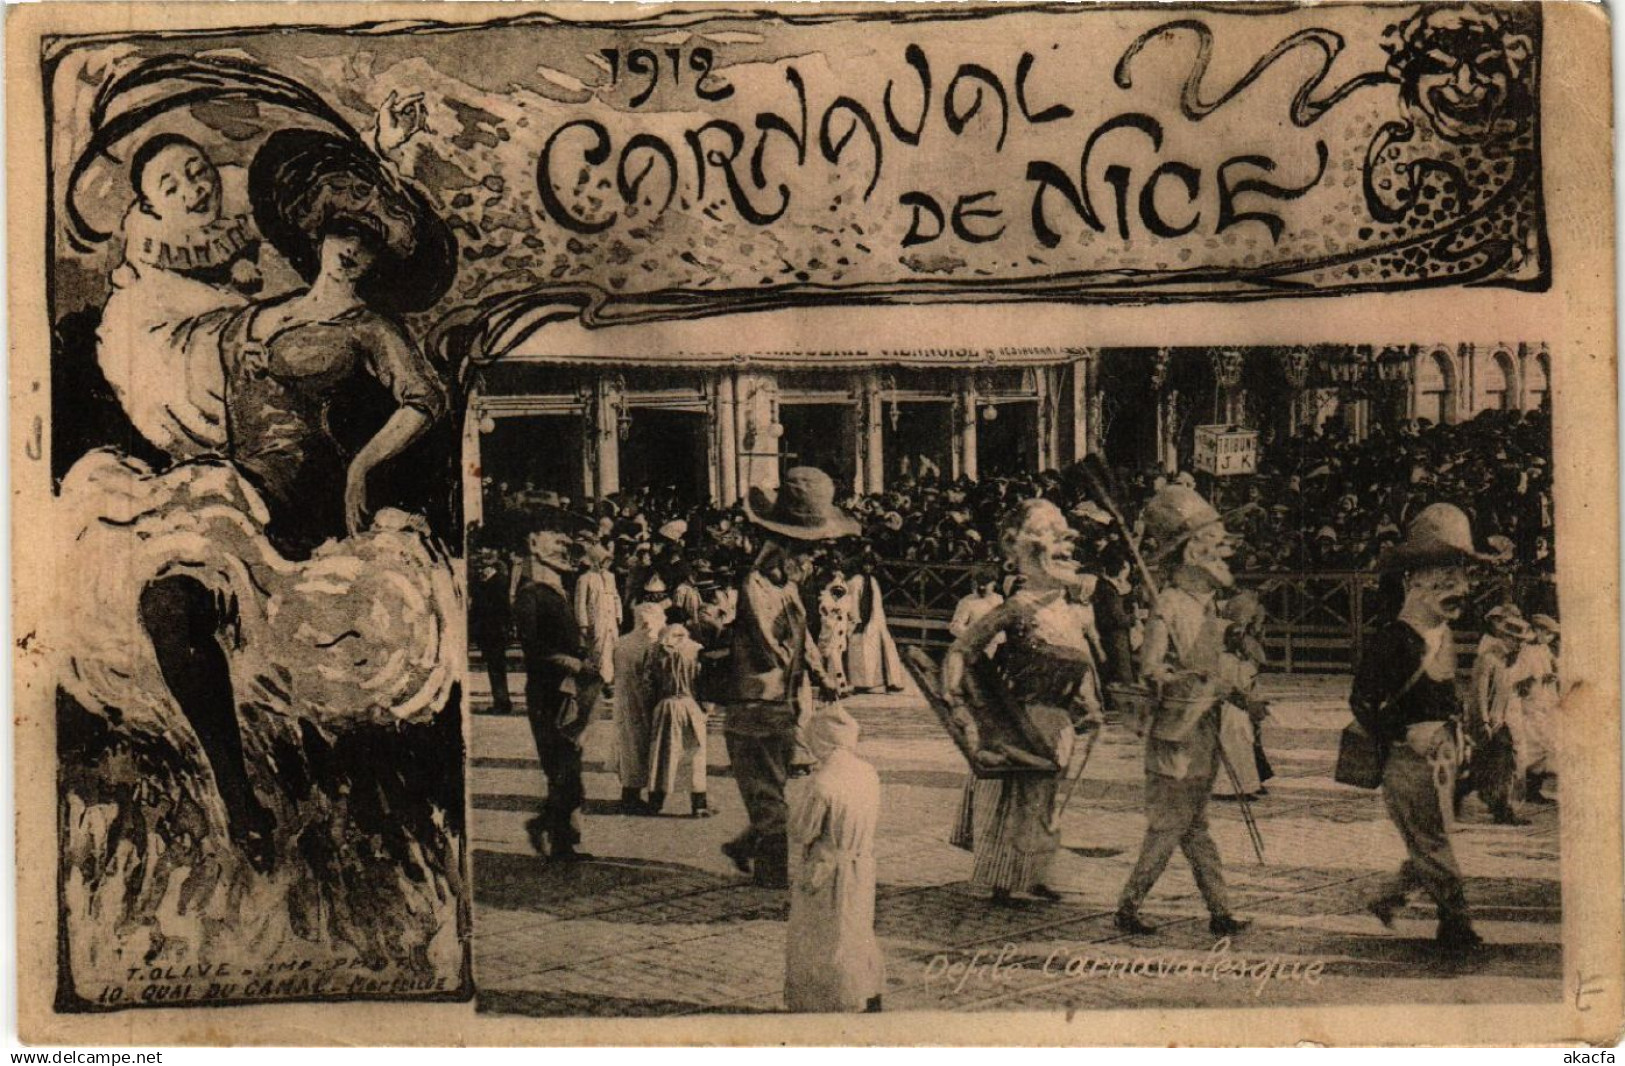 1912
CARNAVAL
DE NICE
BRASSERIE VIENNOISE RESTAURANT
TRIBUNE
J. K
Défilé Carnavalesque
T. OLIVE - IMP. PHOT.
10 - QUAI DU CANAL - Marseille
www.delcampe.net
akacfa